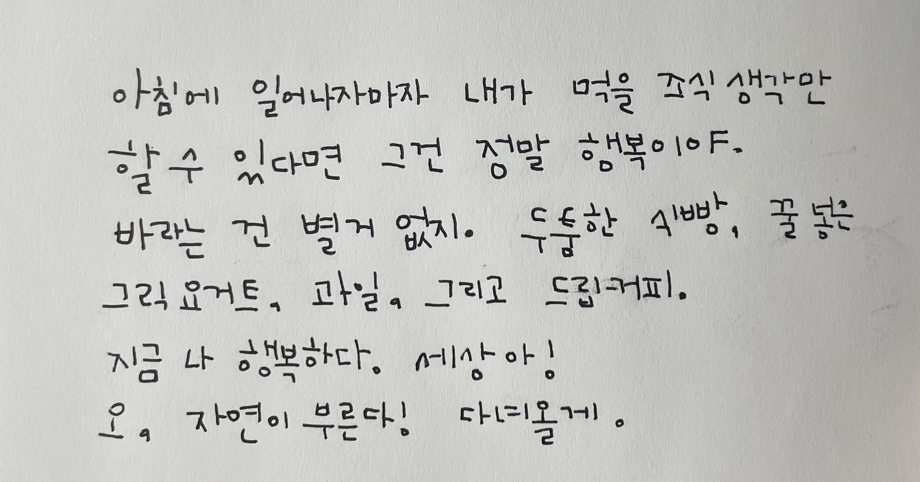 아침에 일어나자마자 내가 먹을 조식 생각만
할 수 있다면 그건 정말 행복이야.
바라는 건 별거 없지. 두툼한 식빵, 꿀 넣은
그릭 요거트, 과일, 그리고 드립커피.
지금 나 행복하다. 세상아!
오, 자연이 부른다! 다녀올게.